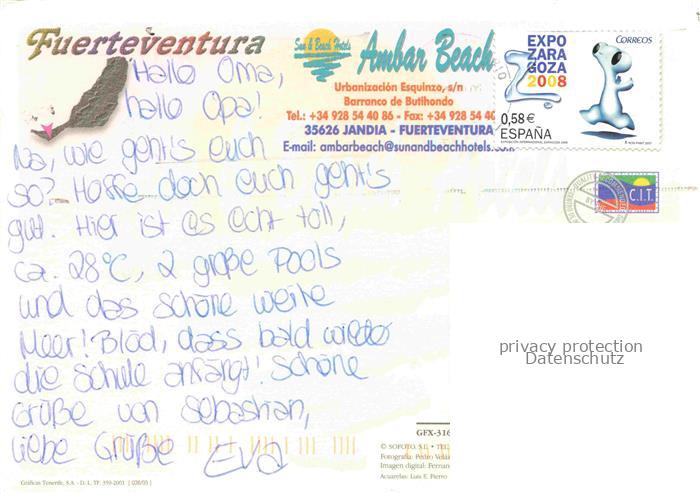 Fuerteventura
Sun & Beach Hotels
Ambar Beach
Urbanización Esquinzo, s/n
Barranco de Butihondo
Tel.: +34 928 54 40 86 - Fax: +34 928 54 40
35626 JANDIA - FUERTEVENTURA
E-mail: ambarbeach@sunandbeachhotels.com
EXPO
ZARA
GOZA
2008
CORREOS
0,58€
ESPAÑA
C.I.T.
Hallo Oma,
hallo Opa!
Na, wie geht's euch
so? Hoffe doch euch geht's
gut. Hier ist es echt toll,
ca. 28°C, 2 große Pools
und das schöne weite
Meer! Blöd, dass bald wieder
die Schule anfängt! Schöne
Grüße von Sebastian,
liebe Grüße Eva
privacy protection
Datenschutz
GFX-316
© SOFOTO, S.L. • TEL.
Fotografía: Pedro Vela
Imagen digital: Fernan
Acuarelas: Luis E. Pierro
Gráficas Tenerife, S.A. - D. L. TF. 359-2001